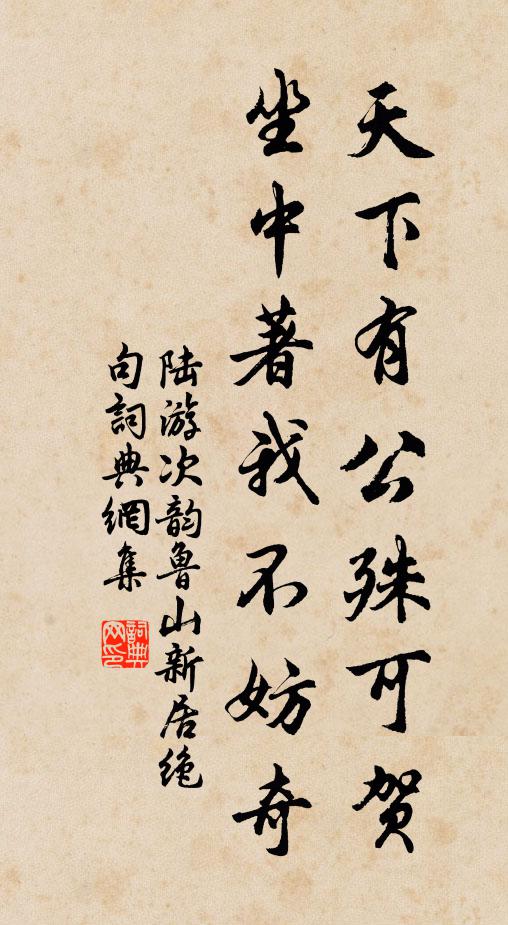 天下有公殊可贺
坐中著我不妨奇
陆游次韵鲁山新居绝
句词典網集
詞典网印